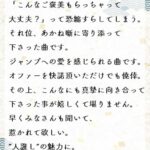 「こんなご褒美もらっちゃって
大丈夫？」って恐縮すらしてしまう。
それ位、あかね噺に寄り添って
下さった曲です。
ジャンプへの愛を感じられる曲です。
オファーを快諾頂いただけでも僥倖。
その上、こんなにも真摯に向き合って
下さった事が嬉しくて堪りません。
早くみなさんも聞いて、
惹かれて欲しい。
“人誑し”の魅力に。